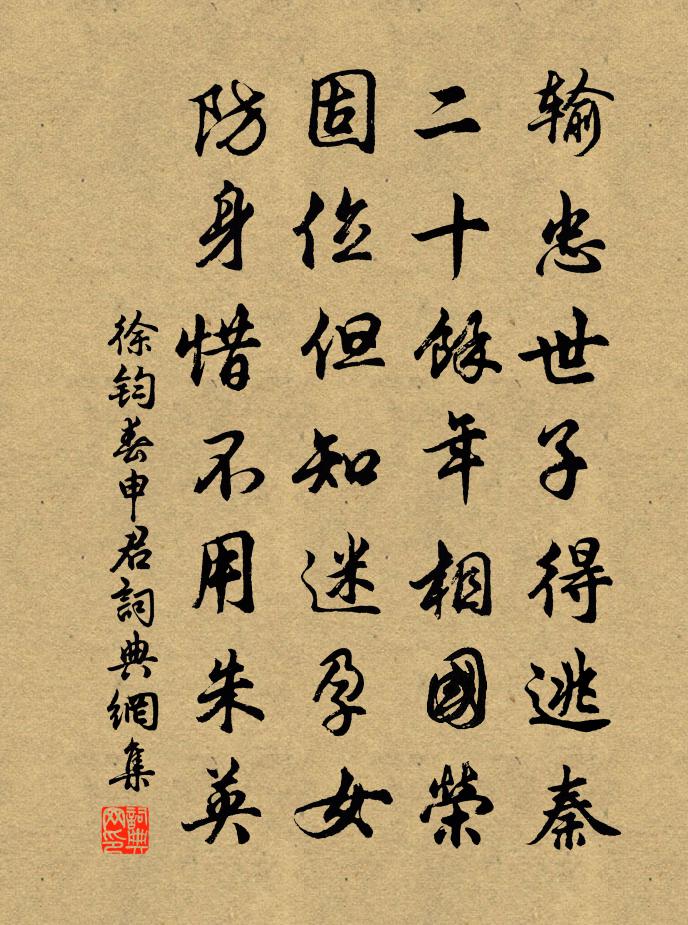 输忠世子得逃秦
二十餘年相國榮
固位但知迷孕女
防身惜不用朱英
徐鈞春申君詞典網集
詞典網印